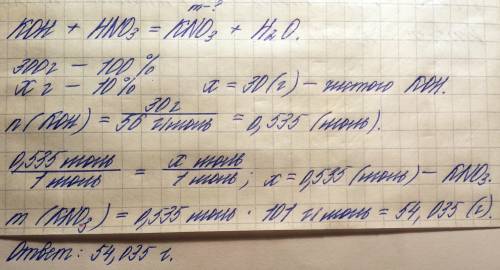 m-?
KOH + HNO₃ = KNO₃ + H₂O.
300г – 100 %
x г – 10 %    x = 30 (г) – чистого KOH.
n (KOH) = 30 г / 56 г/моль = 0,535 (моль).
0,535 моль / 1 моль = x моль / 1 моль ; x = 0,535 (моль) – KNO₃.
m (KNO₃) = 0,535 моль · 101 г/моль = 54,035 (г).
Ответ: 54,035 г.